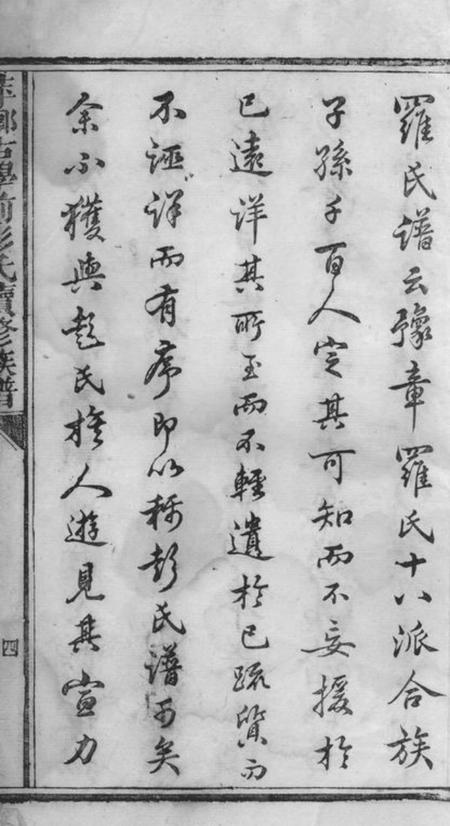 羅氏譜云豫章羅氏十八派合族
子孫千百人定其可知而不妄援於
已遠詳其所至而不輕遺於已疏質而
不誣詳而有序即以稱彭氏譜可矣
余不獲與彭氏族人遊見其宣力
萍鄉古學前彭氏續修族譜
四